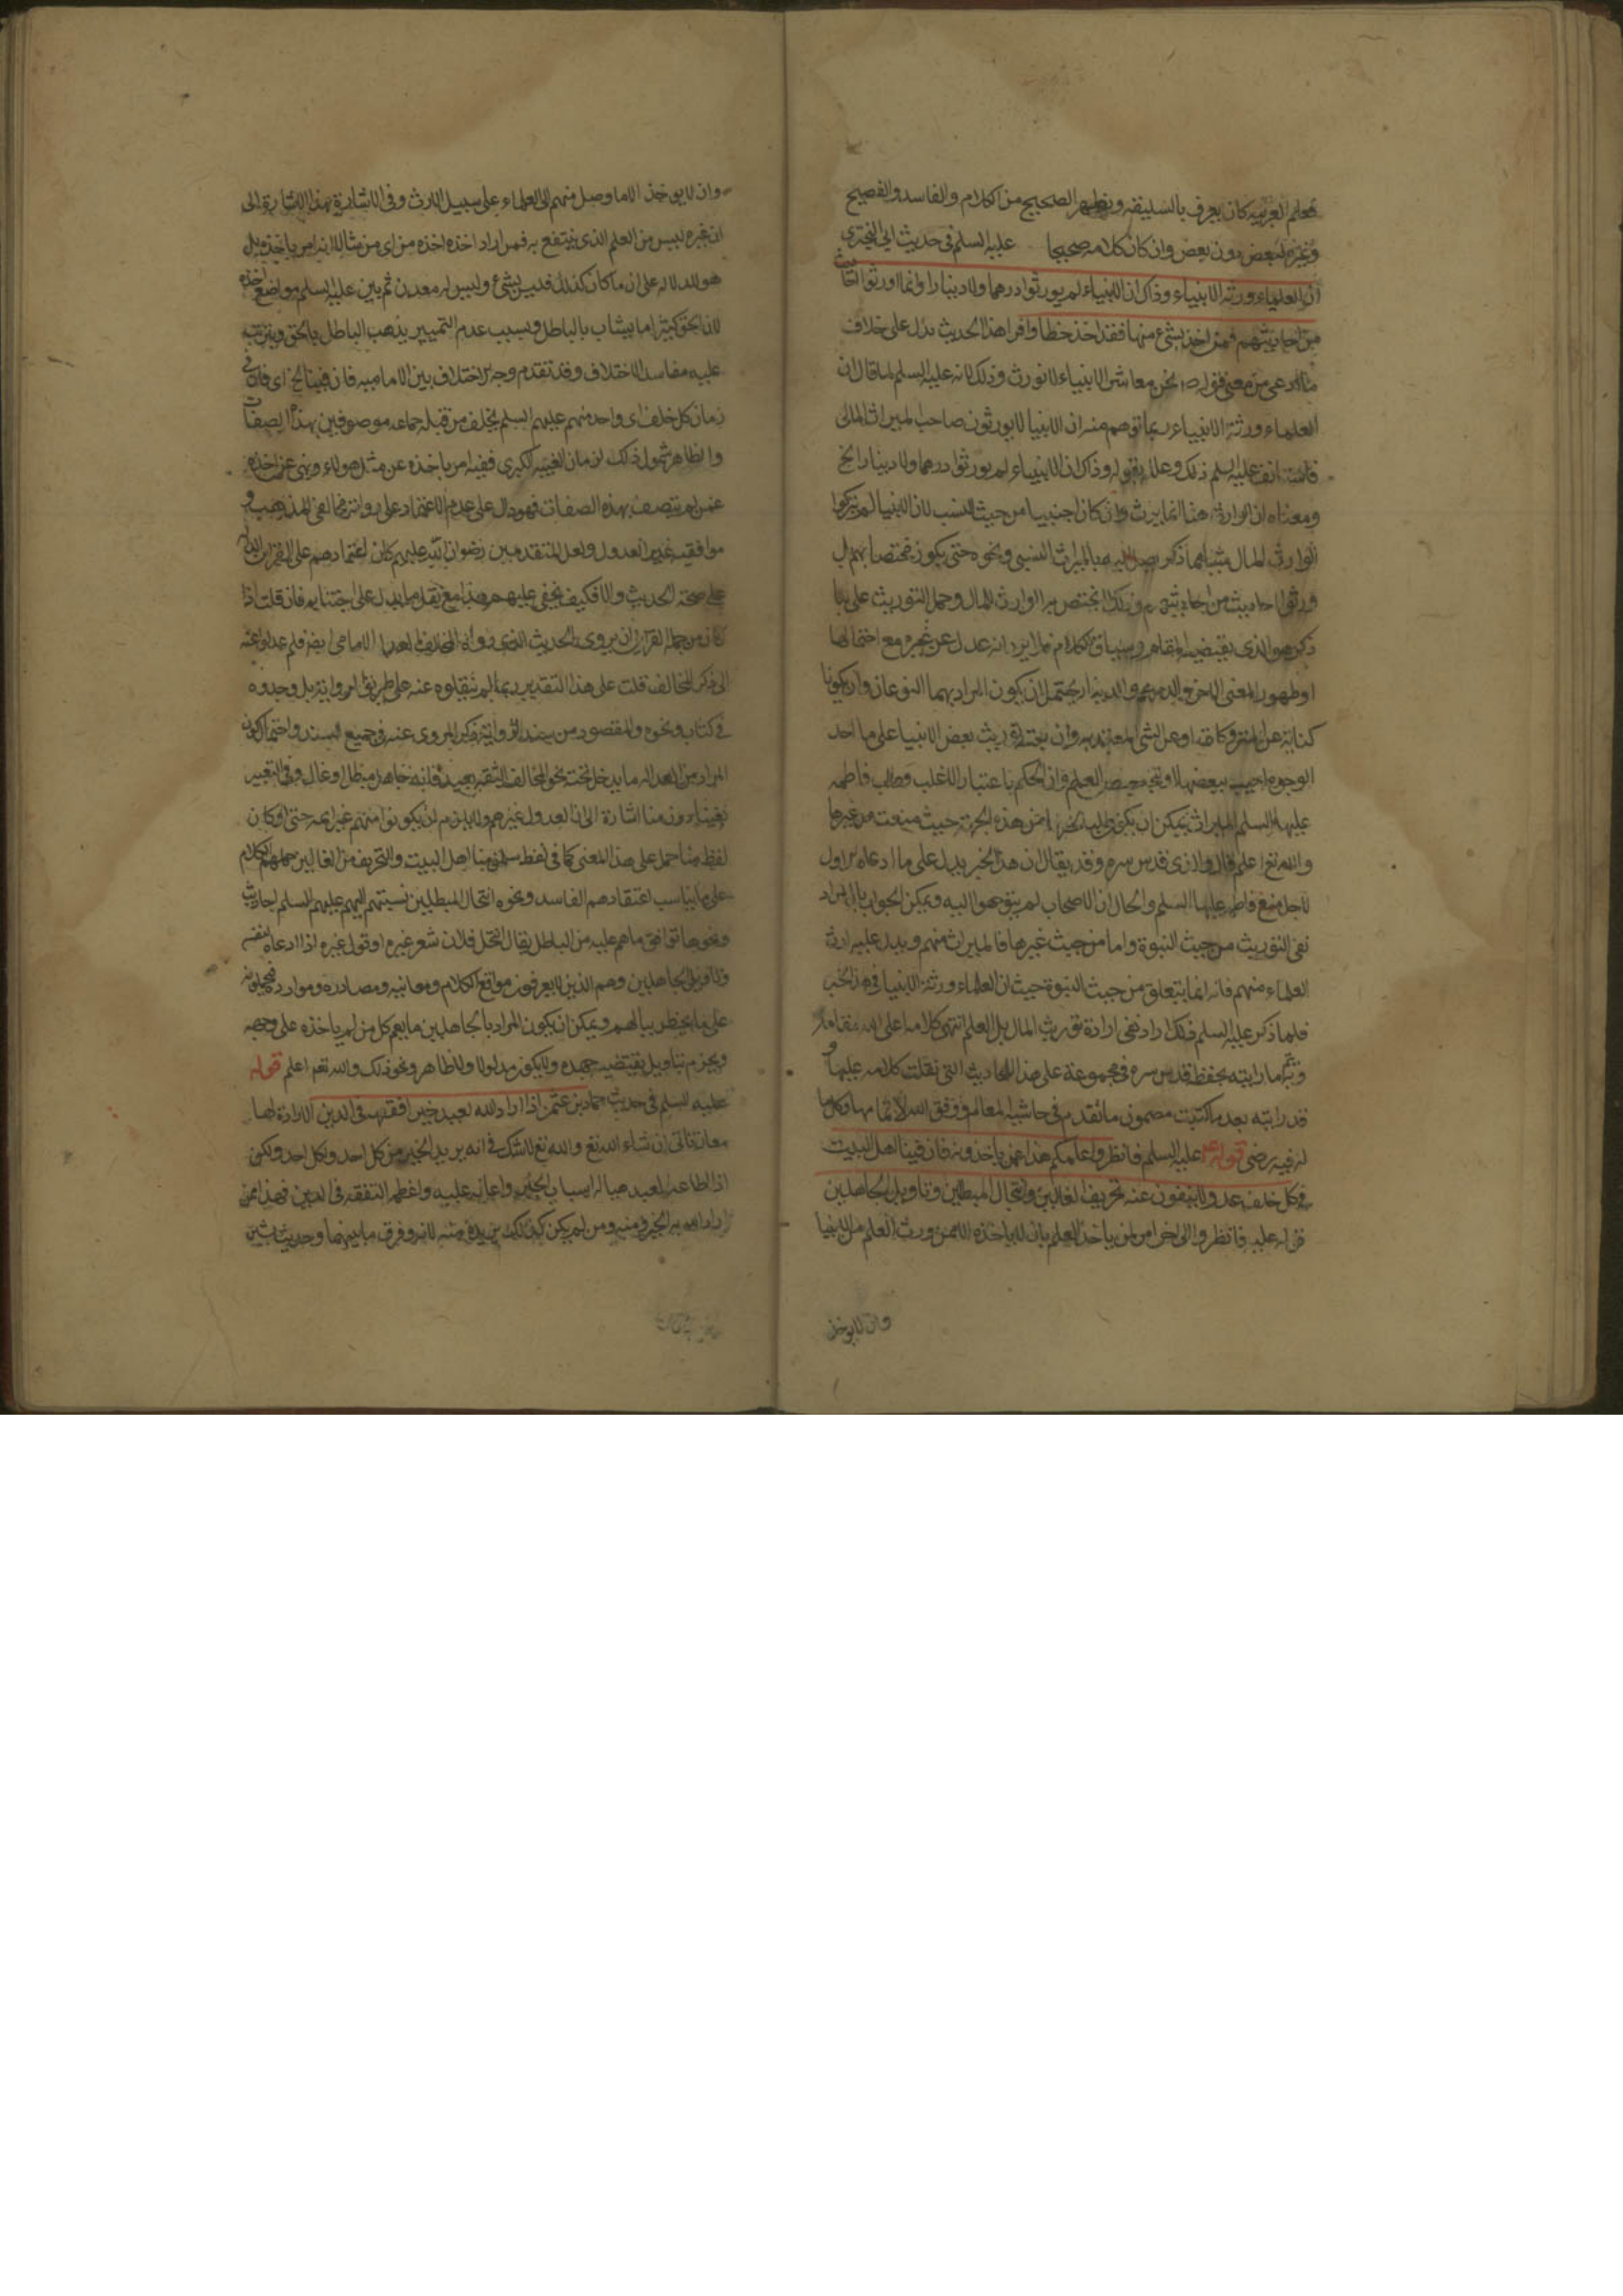 فعلم العربيه كان يعرف بالسليقه ويظهر الصحيح من الكلام والفاسد والفصيح
وغيره لبعض دون بعض وان كان كلامه صحيحا عليه السلم في حديث ابي البختري
ان العلماء ورثة الانبياء وذاك ان الانبياء لم يورثوا درهما ولا دينارا وانما اورثوا احاديث
من احاديثهم فمن اخذ بشئ منها فقد اخذ حظا وافرا هذا الحديث يدل على خلاف
ما ادعى من معنى قوله ص نحن معاشر الانبياء لا نورث وذلك لانه عليه السلم لما قال ان
العلماء ورثة الانبياء ربما توهم منه ان الانبيا لا يورثون صاحب الميراث المالى
عليه السلم ذلك وعلله بقوله وذاك ان الانبياء لم يورثوا درهما ولا دينارا الخ
ومعناه ان الوارث هنا انما يرث وان كان اجنبيا من حيث النسب لان الانبيا لم يتركوا
لوارث المال بالميراث النسبى ونحوه حتى يكون مختصا بهم بل
ورثوا احاديث من احاديثهم وذلك لا يختص به الوارث للمال وحمل التوريث على ما
ذكر هو الذى يقتضيه المقام وسياق الكلام فلا يرد انه عدل عن غيره مع احتمالها
او ظهور المعنى الاخر والدرهم والدينار يحتمل ان يكون المراد بهما النوعان وان يكونا
كناية عن او عن الشئ المعتد به وان توريث بعض الانبيا على ما احد
الوجوه اجيب ببعضها العلم وان الحكم باعتبار الاغلب وطلب فاطمه
عليها السلم الميراث يمكن ان يكون من هذه الجهة حيث منعت من غيرها
والله تع اعلم قال والدى قدس سره وقد يقال ان هذا الخبر يدل على ما ادعاه الاول
لاجل منع فاطمه عليها السلم والحال ان الاصحاب لم يتوجهوا اليه ويمكن الجواب بان المراد
نفى التوريث من حيث النبوة واما من حيث غيرها فالميراث منهم ويدل عليه ارث
العلماء منهم فانه انما يتعلق من حيث النبوة حيث ان العلماء ورثة الانبيا في هذا الخبر
فلما ذكر عليه السلم ذلك اراد نفى ارادة توريث المال بل العلم انتهى كلامه اعلى الله مقامه
ما رايته بخط قدس سره في مجموعة على هذه الاحاديث التى نقلت كلامه عليها و
قد رايته بعد ما كتبت مضمون ما تقدم في حاشية المعالم ووفق الله لاتمامها وكل ما
له فيه رضى قوله عليه السلم فانظروا علمكم هذا عمن ياخذونه فان فينا اهل البيت
في كل خلف عدولا ينفون عنه تحريف الغالين وانتحال المبطلين وتاويل الجاهلين
قوله عليه فانظروا الى اخر امر لمن ياخذ العلم بان لا ياخذه الا ممن ورث العلم من الانبيا
وان لا يوخذ
وان لا يوخذ الا ما وصل منهم الى العلماء على سبيل الارث وفي الاشارة بهذا اشارة الى
ان غيره ليس من العلم الذى ينتفع به فمن اراد اخذه اخذه من اى من شاء لا انه امر باخذه بل
هو للدلاله على ان ما كان كذلك فليس بشئ وليس له معدن ثم بين عليه السلم مواضع اخذه
لان الحق كثيرا ما يشاب بالباطل وبسبب عدم التمييز يذهب الباطل بالحق ويترتب
عليه مفاسد الاختلاف وقد تقدم وجه الاختلاف بين الاماميه فان فينا الخ اى فان في
زمان كل خلف اى واحد منهم عليهم السلم يخلف من قبله جماعه موصوفين بهذه الصفات
والظاهر شمول ذلك لزمان الغيبه الكبرى ففيه امر باخذه عن مثل هولاء ونهى عن اخذه
عمن لم يتصف بهذه الصفات فهو دال على عدم الاعتماد على رواية مخالفى المذهب و
موافقيه غير العدول ولعل المتقدمين رضوان الله عليهم كان اعتمادهم على القراين الداله
على صحة الحديث والا فكيف يخفى عليهم هذا مع نقل ما يدل على اجتنابه فان قلت اذا
كان من جملة القراين ان يروى الحديث الذى رواه المخالف العدل الامامى ايضا فلم عدلوا عنه
الى ذكر المخالف قلت على هذا التقدير ربما لم ينقلوه عنه على طريق الرواية بل وجدوه
في كتاب ونحوه والمقصود من سند الرواية ذكر المروى عنه في جميع السند واحتمال كون
المراد من العداله ما يدخل تحته نحو المخالف الثقه بعيد فانه جاهل مبطل او غال وفي التعبير
بفينا دون منا اشارة الى ان العدول غيرهم ولا يلزم ان يكونوا منهم غير ايمه حتى لو كان
لفظ منا حمل على هذا المعنى كما في لفظ سلمان منا اهل البيت والتحريف من الغالين حملهم الكلام
على ما يناسب اعتقادهم الفاسد ونحوه انتحال المبطلين نسبتهم اليهم عليهم السلم احاديث
ونحوها توافق ما هم عليه من الباطل يقال انتحل فلان شعر غيره او قول غيره اذا ادعاه لنفسه
وتاويل الجاهلين وهم الذين لا يعرفون مواقع الكلام ومعانيه ومصادره وموارده فيحملونه
على ما يخطر ببالهم ويمكن ان يكون المراد بالجاهلين ما يعم كل من لم ياخذه على وجهه
ويجزم بتاويل يقتضيه جهده ولا يكون مدلولا ولا ظاهرا ونحو ذلك والله تعم اعلم قوله
عليه السلم في حديث حماد بن عثمن اذا اراد الله لعبد خيرا فقهه في الدين الارادة لها
معان تاتى ان شاء الله تع والله تع لا شك في انه يريد الخير من كل احد ولكل احد ولكن
اذا اطاعه العبد هيا له اسباب الخير واعانه عليه واعظمه التفقه في الدين فهذا ممن
اراد الله به الخير ومنه ومن لم يكن كذلك لم يرده منه لا به وفرق ما بينهما وحديث